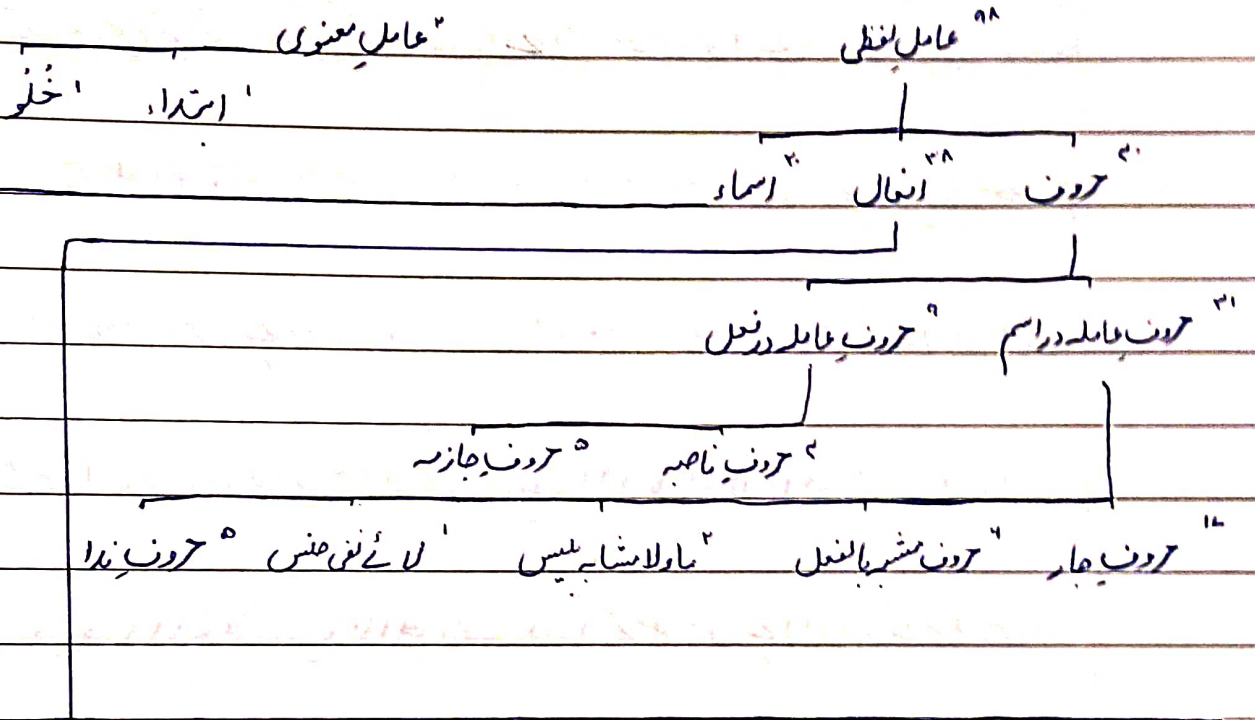 ۹۸ عاملِ لفظی ۲ عاملِ معنوی
۱ ابتداء ۱ خُلُو
۴۰ حروف ۳۸ افعال ۲۰ اسماء
۳۱ حروفِ عاملہ در اسم ۹ حروفِ عاملہ در فعل
۴ حروفِ ناصبہ ۵ حروفِ جازمہ
۱۷ حروفِ جار ۶ حروف مشبہ بالفعل ۲ ما ولا مشابہ بلیس ۱ لائے نفی جنس ۵ حروفِ ندا